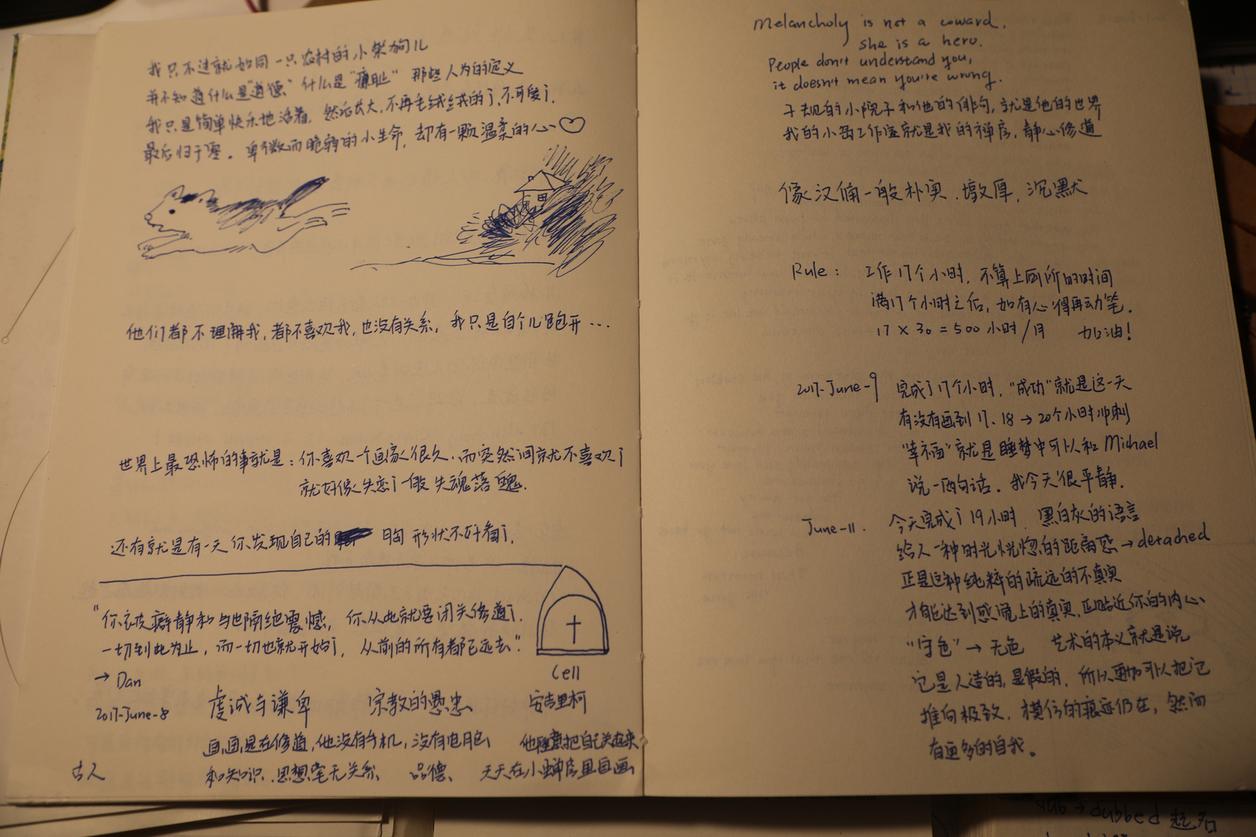 我只不过就如同一只农村的小柴狗儿
并不知道什么是"道德" 什么是"廉耻" 那些人为的定义
我只是简单快乐地活着。然后长大，不再毛绒绒的了，不可爱了，
最后归于零。卑微而脆弱的小生命，却有一颗温柔的心♡
他们都不理解我，都不喜欢我，也没有关系，我只是自个儿跑开…
世界上最恐怖的事就是：你喜欢一个画家很久，而突然间就不喜欢了
就好像失恋了一般失魂落魄。
还有就是有一天你发现自己的 胸 形状不好看了。
"你应被僻静和与世隔绝震撼，你从此就要闭关修道了。
一切到此为止，而一切也就开始了，从前的所有都已远去。"
→ Dan
Cell
2017-June-8 虔诚与谦卑 宗教的愚忠 安吉里柯
画画是在修道，他没有手机，没有电脑 他把自己关起来
古人 和知识、思想毫无关系 品德、 天天在小禅房里画画
Melancholy is not a coward.
she is a hero.
People don't understand you,
it doesn't mean you're wrong.
子规的小院子和他的俳句，就是他的世界
我的小画工作室就是我的禅房，静心修道
像汉俑一般朴实、敦厚，沉默
Rule： 工作17个小时，不算上厕所的时间
满17个小时之后，如有心得再动笔。
17 × 30 = 500 小时/月 加油！
2017-June-9 完成了17个小时，"成功"就是这一天
有没有画到17、18 → 20个小时冲刺
"幸福"就是睡梦中可以和 Michael
说一两句话。我今天很平静。
June-11. 今天完成了19小时 黑白灰的语言
给人一种时光恍惚的距离感 → detached
正是这种纯粹的疏远的不真实
才能达到感觉上的真实，正贴近你的内心
"守色" → 无色 艺术的本义就是说
它是人造的，是假的，所以更加可以把它
推向极致，模仿的痕迹仍在，然而
有更多的自我。